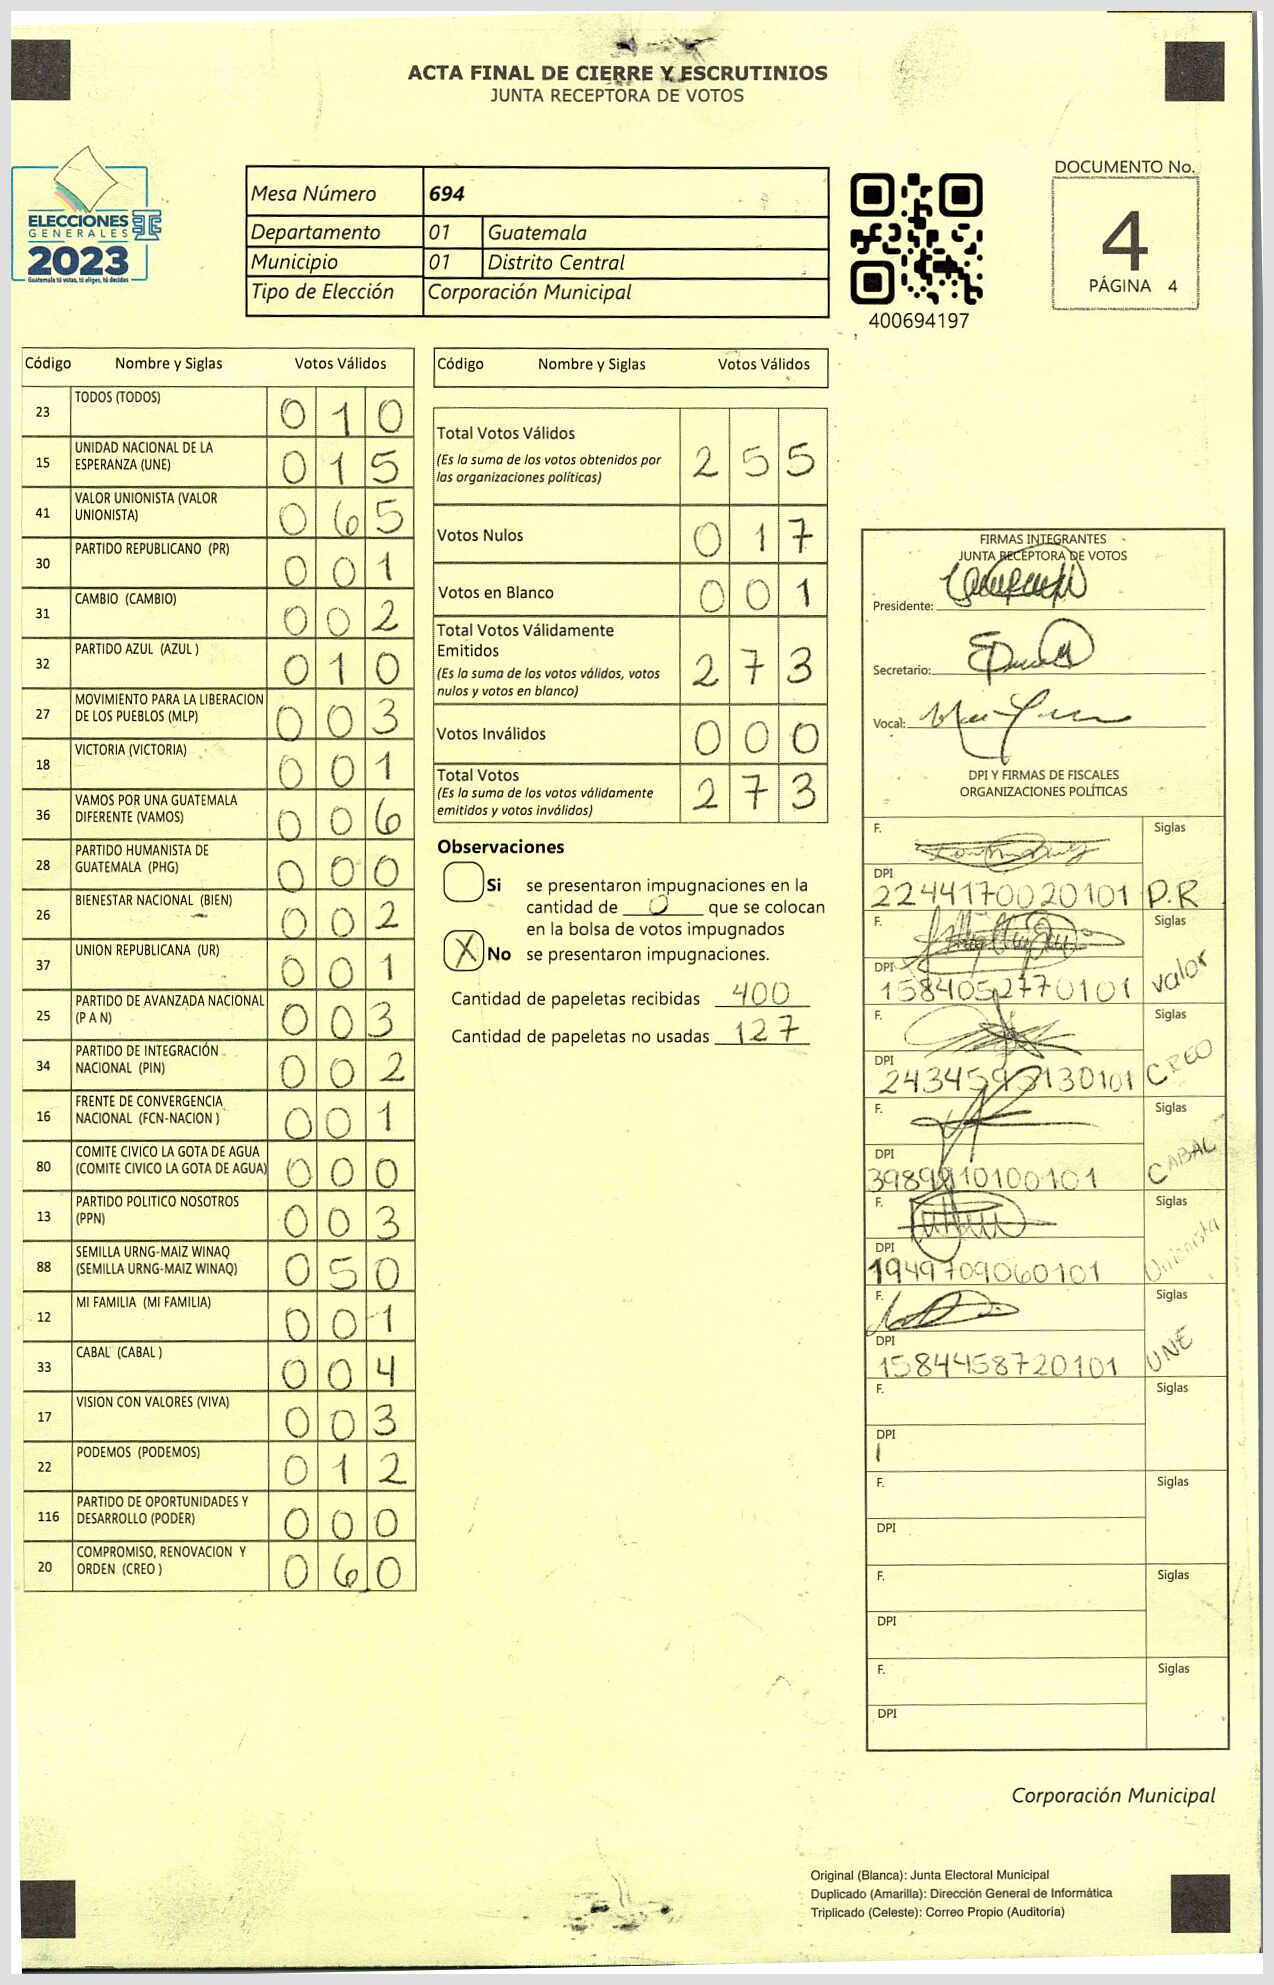 ACTA FINAL DE CIERRE Y ESCRUTINIOS
JUNTA RECEPTORA DE VOTOS
ELECCIONES
GENERALES
2023
Guatemala tú votas, tú eliges, tú decides
Mesa Número 694
Departamento 01 Guatemala
Municipio 01 Distrito Central
Tipo de Elección Corporación Municipal
400694197
DOCUMENTO No.
4
PÁGINA 4
Código Nombre y Siglas Votos Válidos
23 TODOS (TODOS) 0 1 0
15 UNIDAD NACIONAL DE LA
ESPERANZA (UNE) 0 1 5
41 VALOR UNIONISTA (VALOR
UNIONISTA) 0 6 5
30 PARTIDO REPUBLICANO (PR) 0 0 1
31 CAMBIO (CAMBIO) 0 0 2
32 PARTIDO AZUL (AZUL ) 0 1 0
27 MOVIMIENTO PARA LA LIBERACION
DE LOS PUEBLOS (MLP) 0 0 3
18 VICTORIA (VICTORIA) 0 0 1
36 VAMOS POR UNA GUATEMALA
DIFERENTE (VAMOS) 0 0 6
28 PARTIDO HUMANISTA DE
GUATEMALA (PHG) 0 0 0
26 BIENESTAR NACIONAL (BIEN) 0 0 2
37 UNION REPUBLICANA (UR) 0 0 1
25 PARTIDO DE AVANZADA NACIONAL
(P A N) 0 0 3
34 PARTIDO DE INTEGRACIÓN
NACIONAL (PIN) 0 0 2
16 FRENTE DE CONVERGENCIA
NACIONAL (FCN-NACION ) 0 0 1
80 COMITE CIVICO LA GOTA DE AGUA
(COMITE CIVICO LA GOTA DE AGUA) 0 0 0
13 PARTIDO POLITICO NOSOTROS
(PPN) 0 0 3
88 SEMILLA URNG-MAIZ WINAQ
(SEMILLA URNG-MAIZ WINAQ) 0 5 0
12 MI FAMILIA (MI FAMILIA) 0 0 1
33 CABAL (CABAL ) 0 0 4
17 VISION CON VALORES (VIVA) 0 0 3
22 PODEMOS (PODEMOS) 0 1 2
116 PARTIDO DE OPORTUNIDADES Y
DESARROLLO (PODER) 0 0 0
20 COMPROMISO, RENOVACION Y
ORDEN (CREO ) 0 6 0
Código Nombre y Siglas Votos Válidos
Total Votos Válidos
(Es la suma de los votos obtenidos por
las organizaciones políticas) 2 5 5
Votos Nulos 0 1 7
Votos en Blanco 0 0 1
Total Votos Válidamente
Emitidos
(Es la suma de los votos válidos, votos
nulos y votos en blanco) 2 7 3
Votos Inválidos 0 0 0
Total Votos
(Es la suma de los votos válidamente
emitidos y votos inválidos) 2 7 3
Observaciones
Si se presentaron impugnaciones en la
cantidad de 0 que se colocan
en la bolsa de votos impugnados
X No se presentaron impugnaciones.
Cantidad de papeletas recibidas 400
Cantidad de papeletas no usadas 127
FIRMAS INTEGRANTES
JUNTA RECEPTORA DE VOTOS
Presidente:
Secretario:
Vocal:
DPI Y FIRMAS DE FISCALES
ORGANIZACIONES POLÍTICAS
F. Siglas
DPI
2244170020101 P.R
F. Siglas
DPI
1584052770101 Valor
F. Siglas
DPI
CREO
F. Siglas
DPI
CABAL
F. Siglas
DPI
1949709060101 Unionista
F. Siglas
DPI
1584458720101 UNE
F. Siglas
DPI
F. Siglas
DPI
F. Siglas
DPI
F. Siglas
DPI
Corporación Municipal
Original (Blanca): Junta Electoral Municipal
Duplicado (Amarilla): Dirección General de Informática
Triplicado (Celeste): Correo Propio (Auditoría)